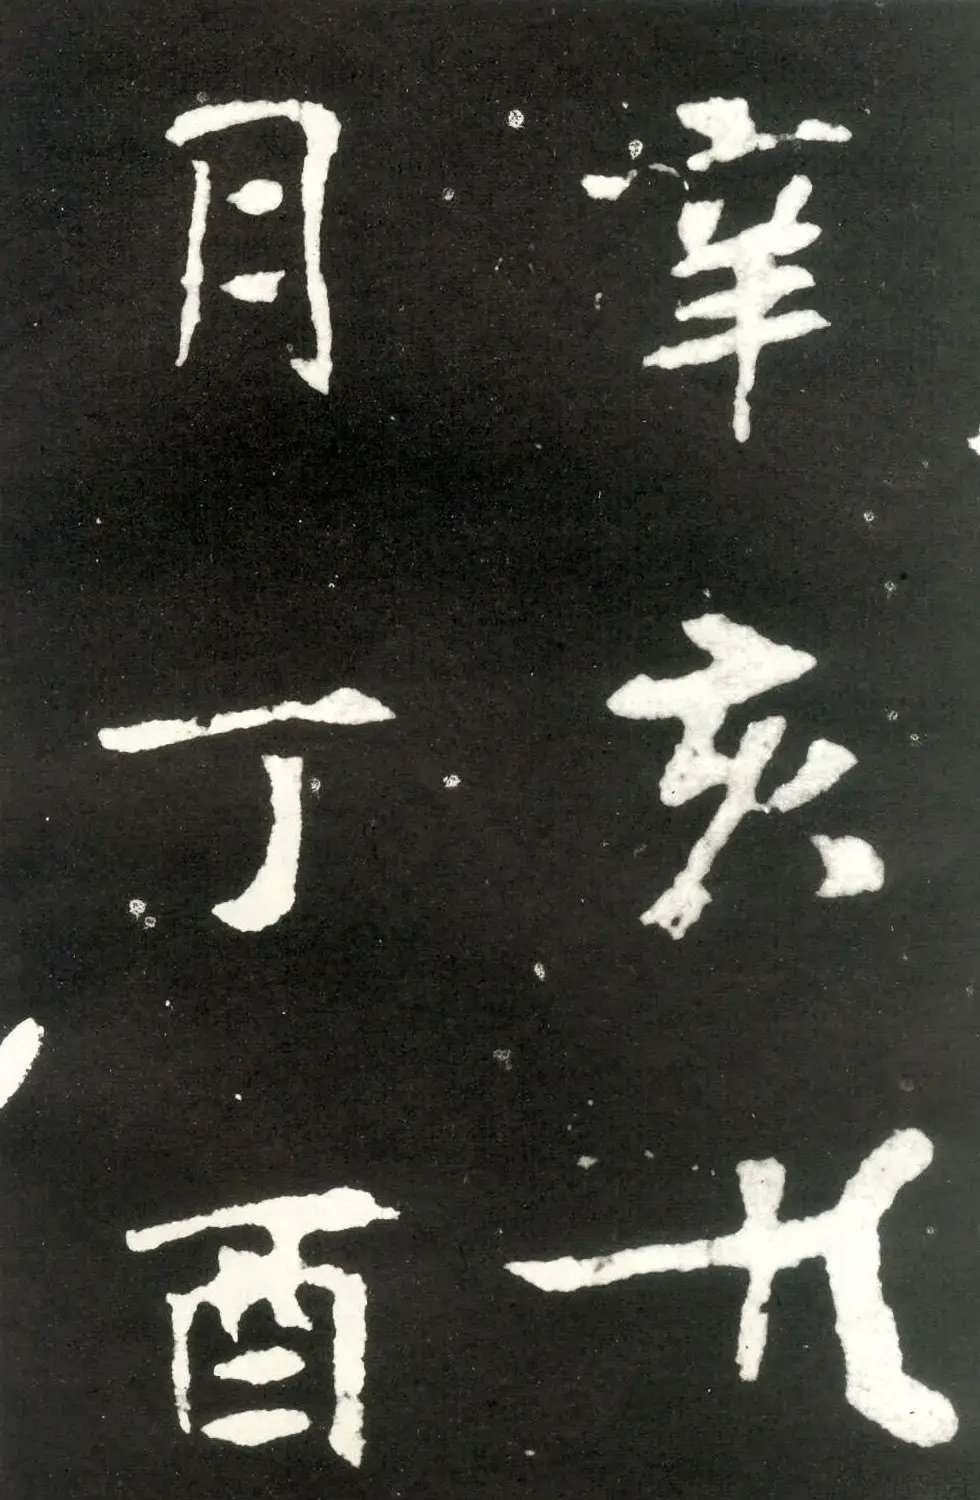 辛亥十
月丁酉